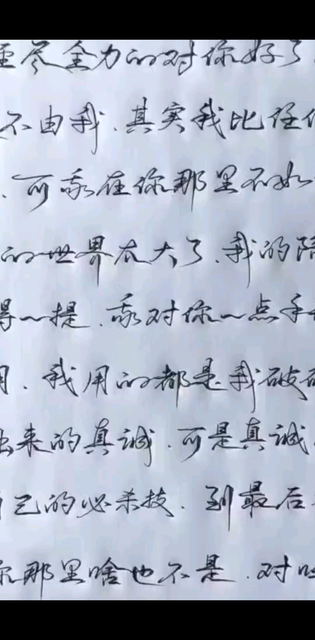 尽全力的对你好了
不由我、其实我比任
、可我在你那里不如
的世界太大了、我的陪
得一提、我对你一点手
用、我用的都是我破破
出来的真诚、可是真诚
自己的必杀技、到最后
你那里啥也不是、对吗